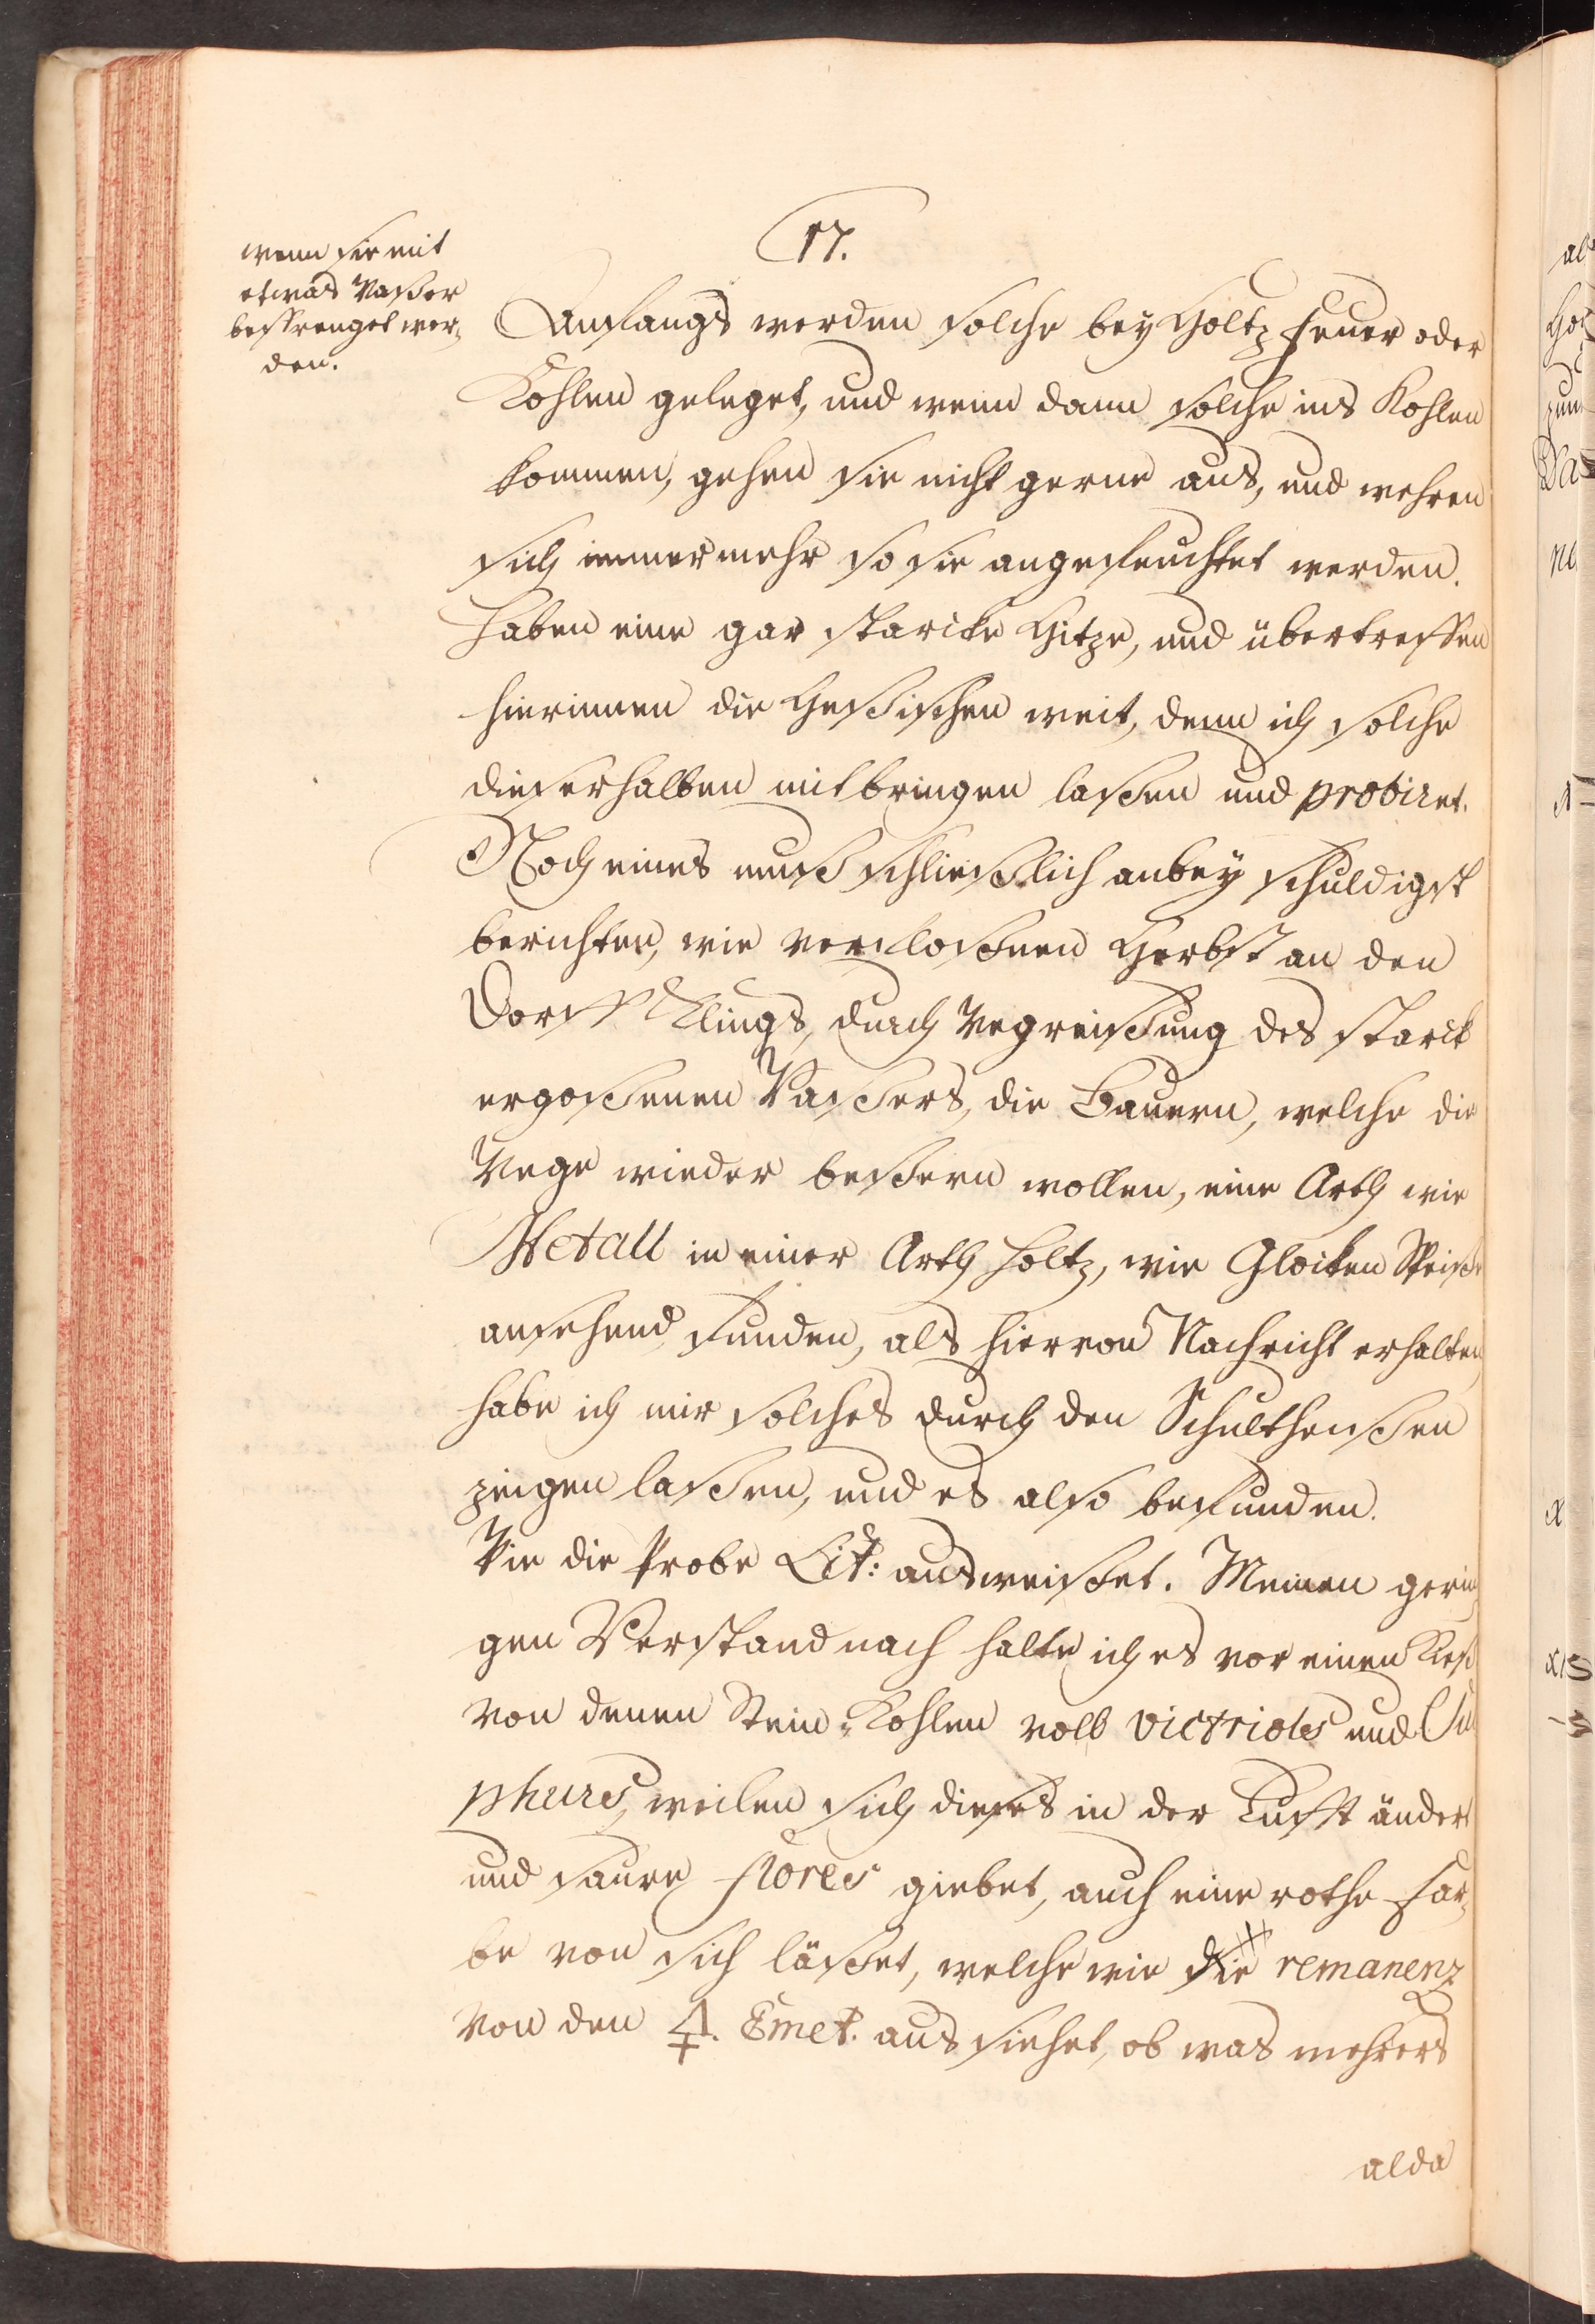 17.
wenn sie mit
etwas Waßer
besprenget wer-
den.
Anfangs werden solche bey Holtz feuer oder
Kohlen geleget, und wenn dann solche ins Kohlen
kommen, gehen sie nicht gerne aus, und wehren
sich immer mehr so sie angefeuchtet werden.
Haben eine gar starcke Hitze, und übertreffen
hierinnen die Heßischen weit, denn ich solche
dieserhalben mitbringen laßen und probiret.
Noch eines muß schließlich anbey schuldigst
berichten, wie verfloßenen Herbst an den
Dorff Klings, durch Wegreißung des starck
ergoßenen Waßers, die Bauern, welche die
Wege wieder beßern wollen, eine Arth wie
Metall in einer Arth Holtz, wie Glocken Speiße
ansehend funden, als hiervon Nachricht erhalten
habe ich mir solches durch den Schultheußen
zeigen laßen, und es also befunden.
Wie die Probe Lit: ausweißet. Meinen gerin
gen Verstand nach halte ich es vor einen Kieß
von denen Stein-Kohlen voll victrioles und Sul
phures, weilen sich dieses in der Lufft ändert
und saure flores giebet, auch eine rothe Far-
be von sich läßet, welche wie die remanenz
von den 🜍. Emet. aus siehet, ob was mehrers
alda